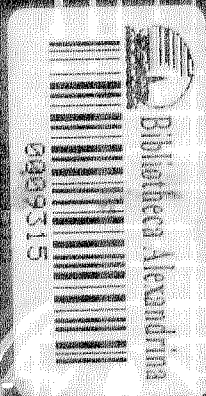 Bibliotheca Alexandrina
0409315